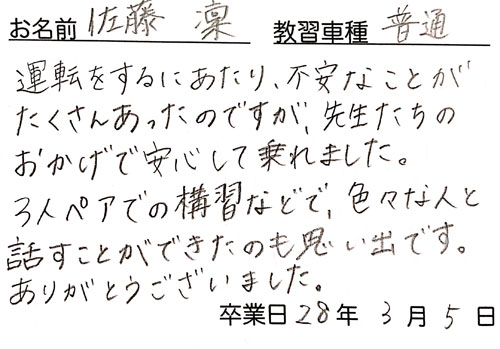 お名前 佐藤 凜 教習車種 普通
運転をするにあたり、不安なことが
たくさんあったのですが、先生たちの
おかげで安心して乗れました。
3人ペアでの構習などで、色々な人と
話すことができたのも思い出です。
ありがとうございました。
卒業日28年3月5日